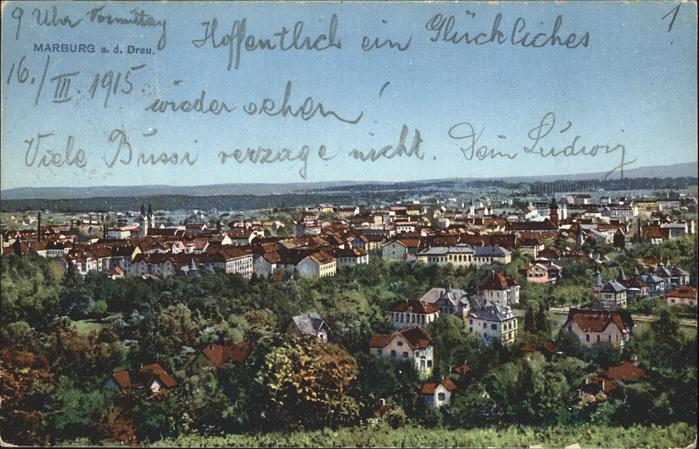 9 Uhr Vormittag
1
Hoffentlich ein Glückliches
MARBURG a. d. Drau.
16./III. 1915.
wieder sehen!
Viele Bussi verzage nicht. Dein Ludwig